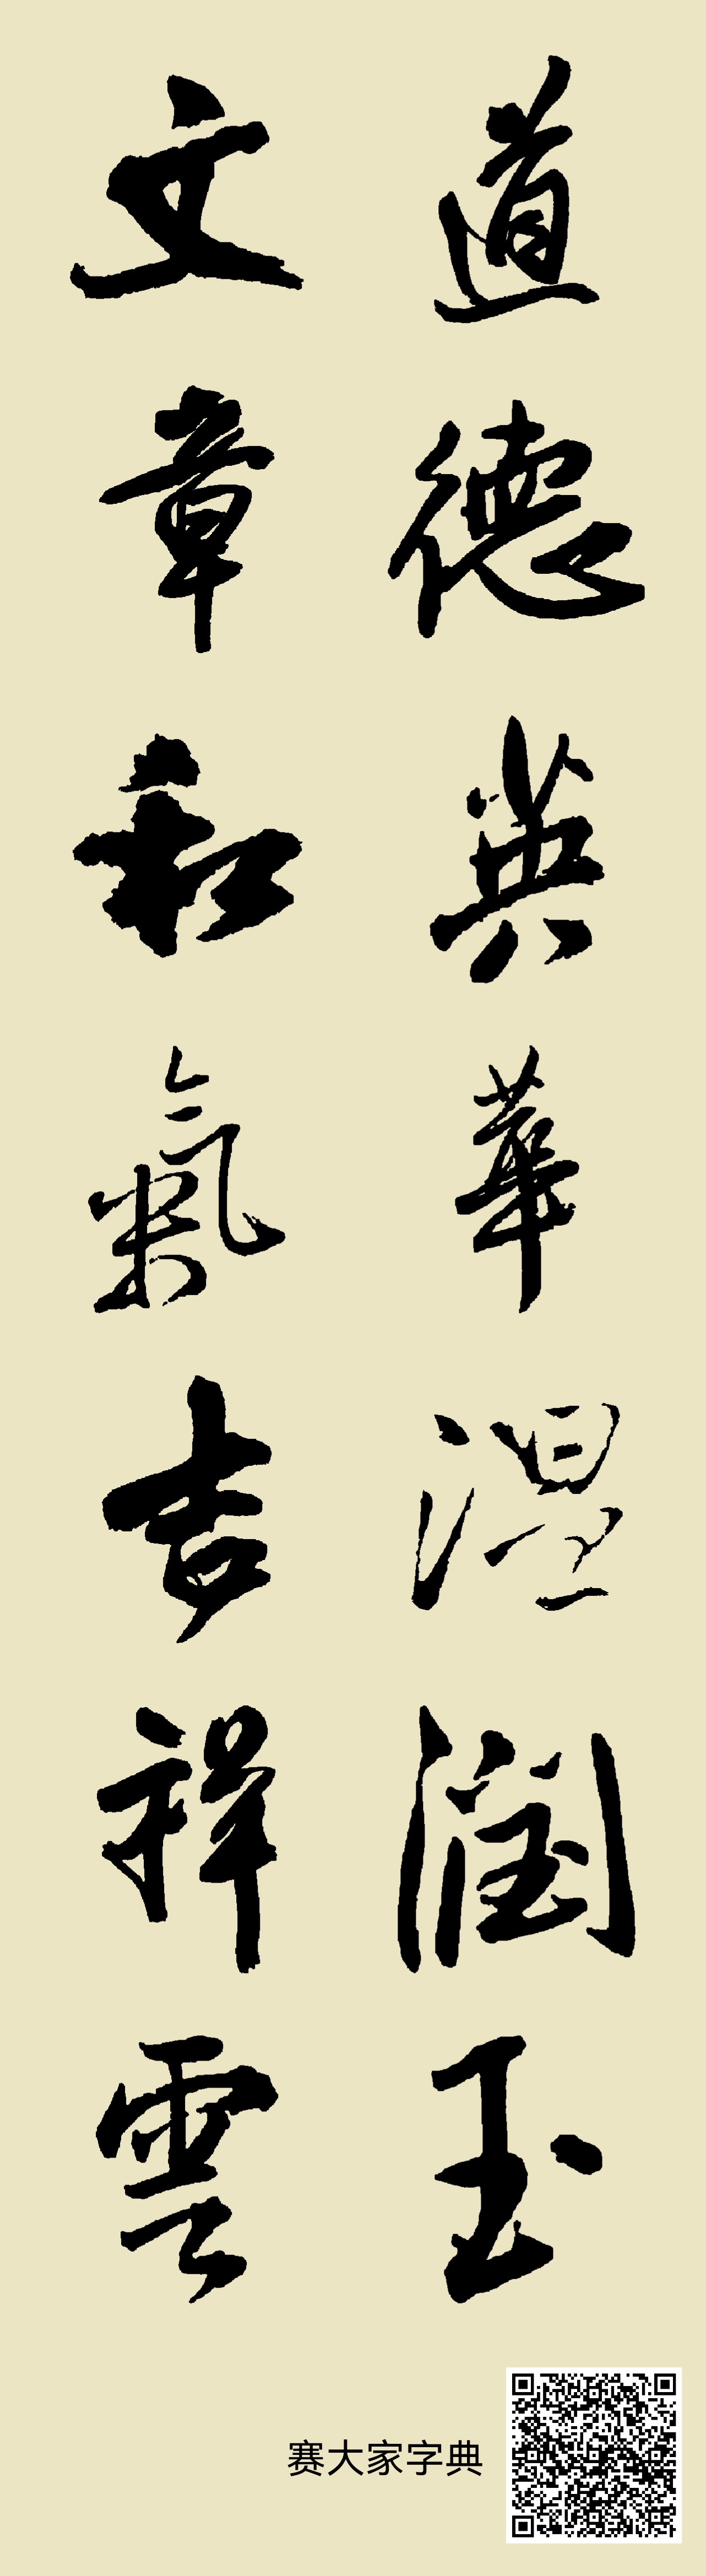 道德英華温潤玉
文章和氣吉祥雲
赛大家字典